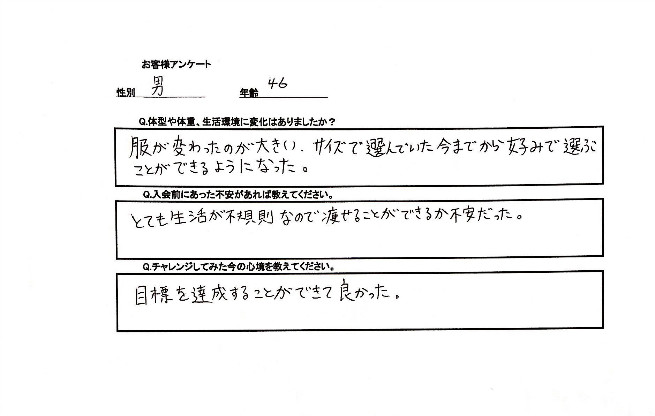 お客様アンケート
性別 男 年齢 46
Q.体型や体重、生活環境に変化はありましたか？
服が変わったのが大きい、サイズで選んでいた今までから好みで選ぶ
ことができるようになった。
Q.入会前にあった不安があれば教えてください。
とても生活が不規則なので痩せることができるか不安だった。
Q.チャレンジしてみた今の心境を教えてください。
目標を達成することができて良かった。